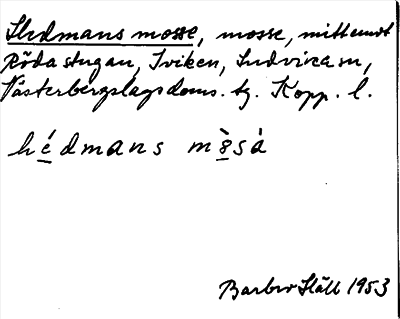 Hedmans mosse, mosse, mittemot
Röda stugan, Iviken, Ludvika sn,
Västerbergslags doms. tg. Kopp. l.
hédmans mòsá
Barbro Häll 1953